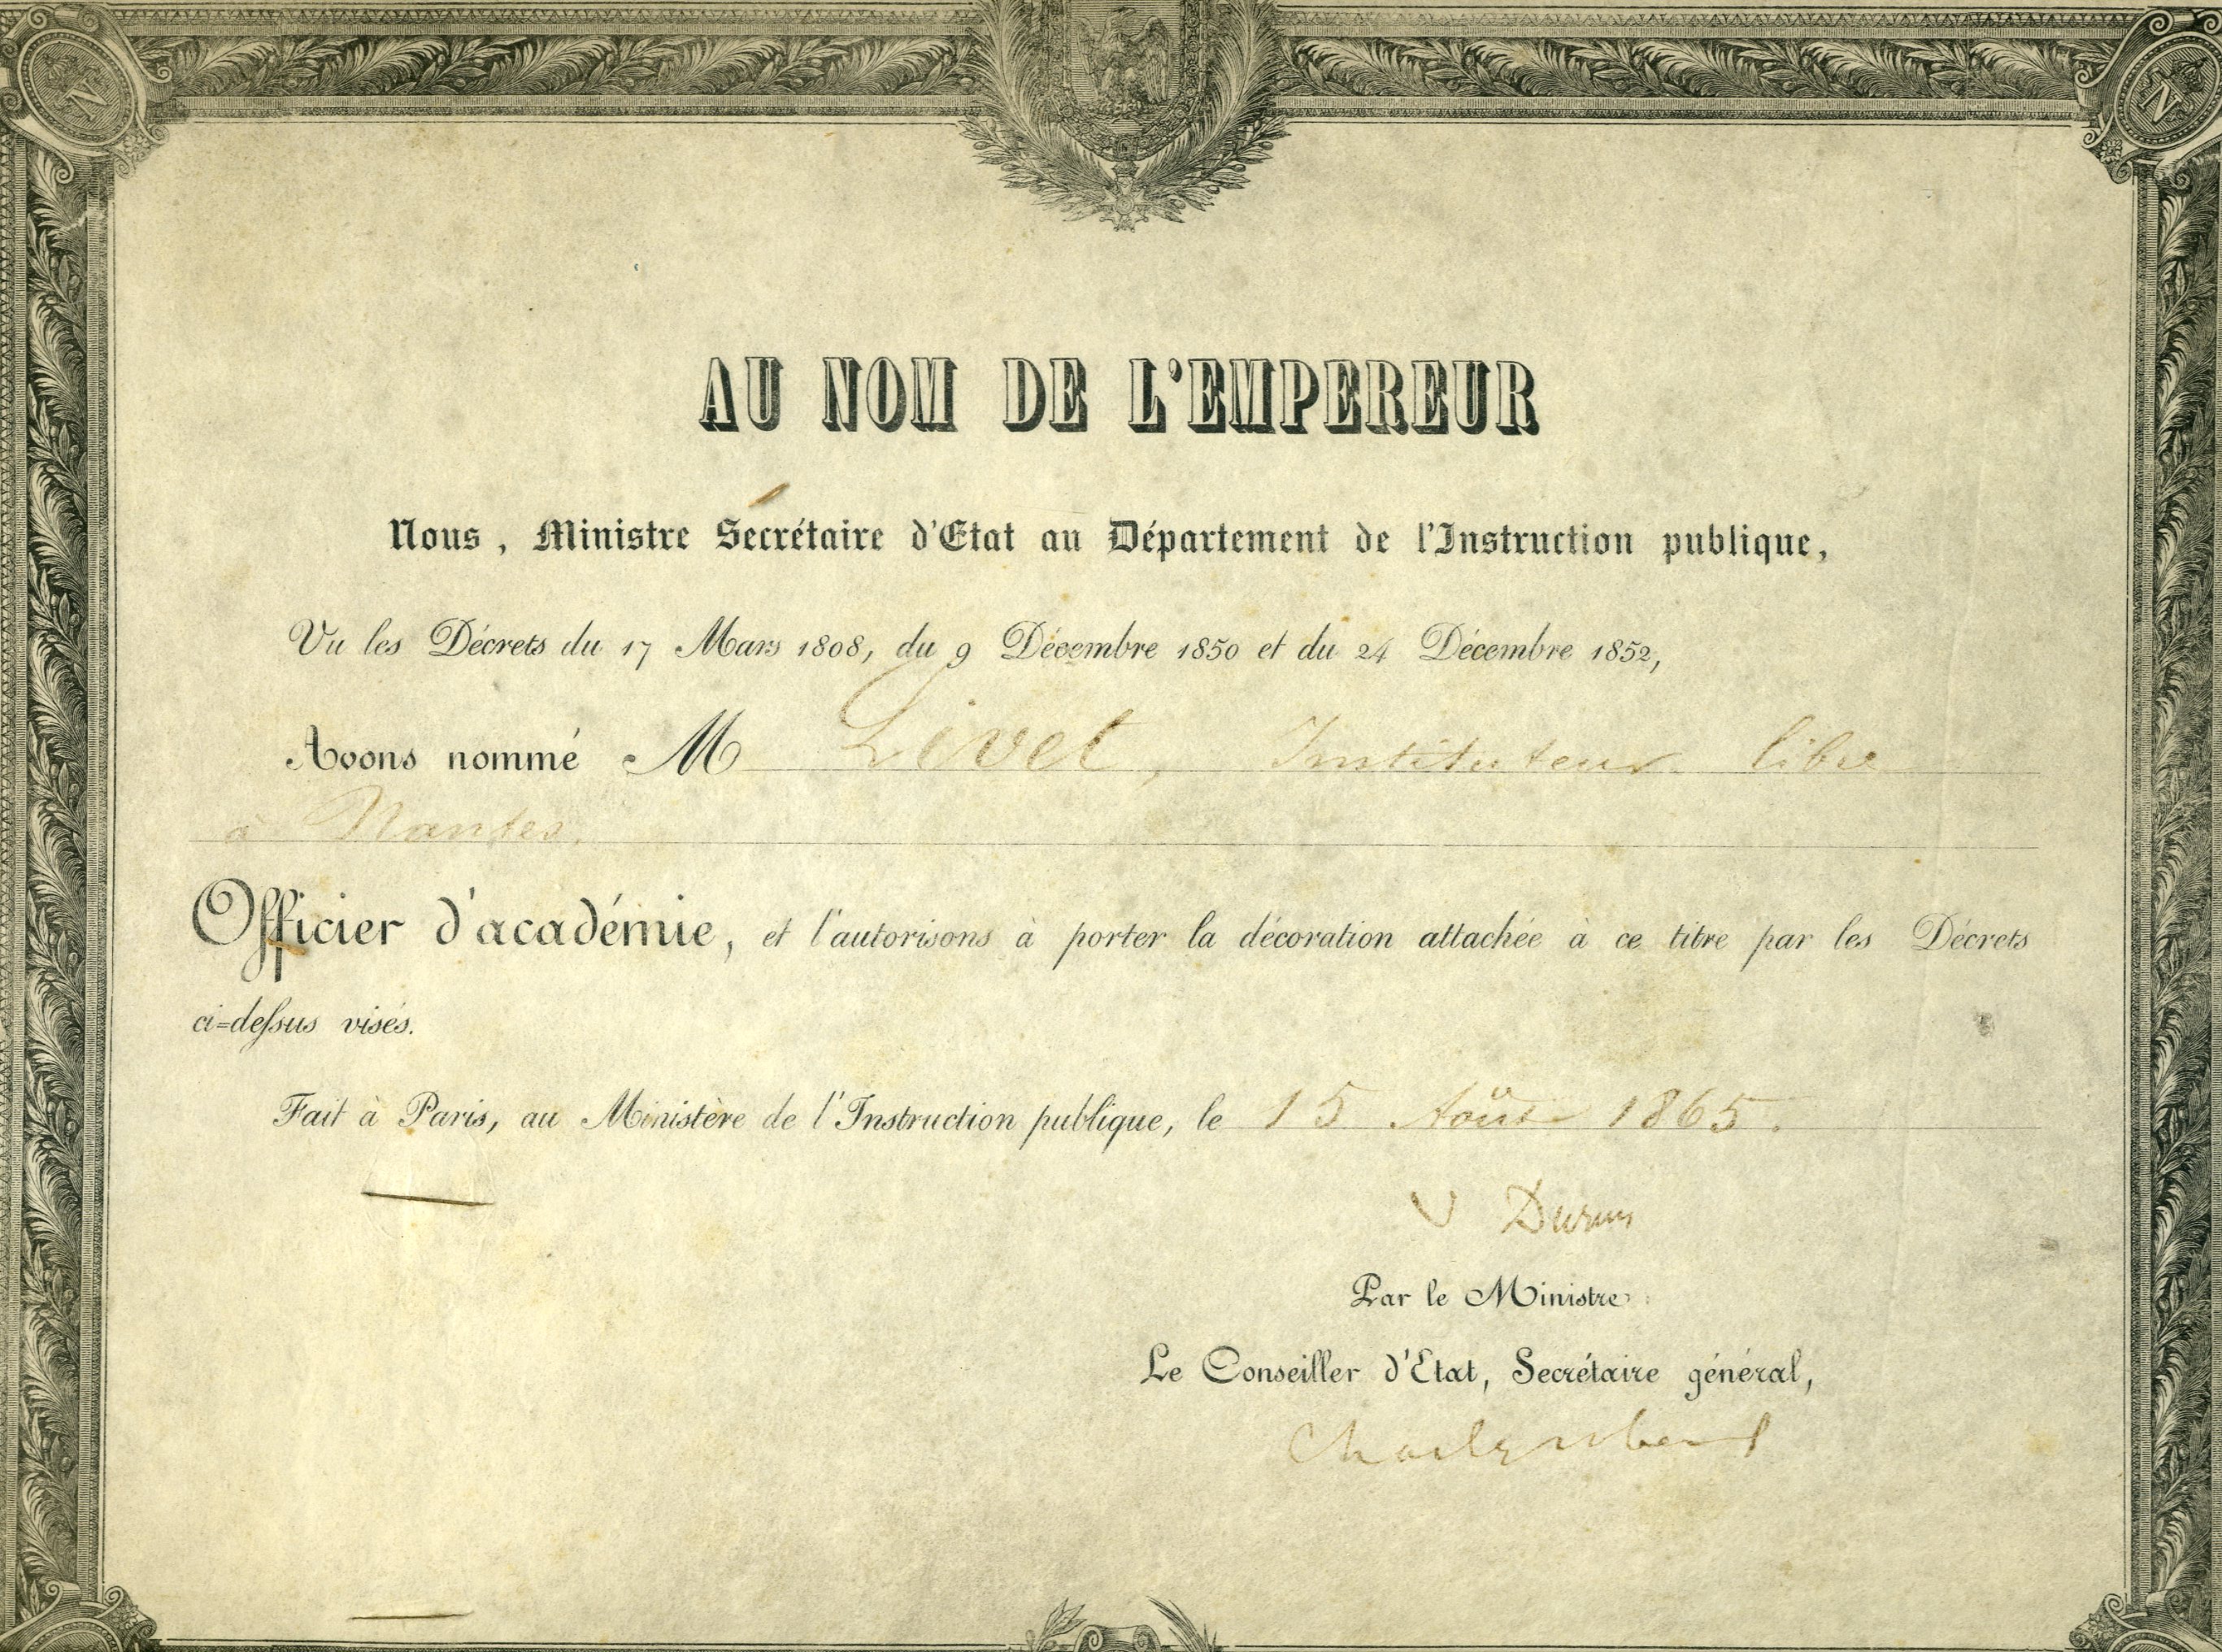 N
N
AU NOM DE L'EMPEREUR
Nous, Ministre Secrétaire d'Etat au Département de l'Instruction publique,
Vu les Décrets du 17 Mars 1808, du 9 Décembre 1850 et du 24 Décembre 1852,
Avons nommé M Livet, Instituteur libre
à Nantes.
Officier d'académie, et l'autorisons à porter la décoration attachée à ce titre par les Décrets
ci=dessus visés.
Fait à Paris, au Ministère de l'Instruction publique, le 15 Août 1865.
V Duruy
Par le Ministre:
Le Conseiller d'Etat, Secrétaire général,